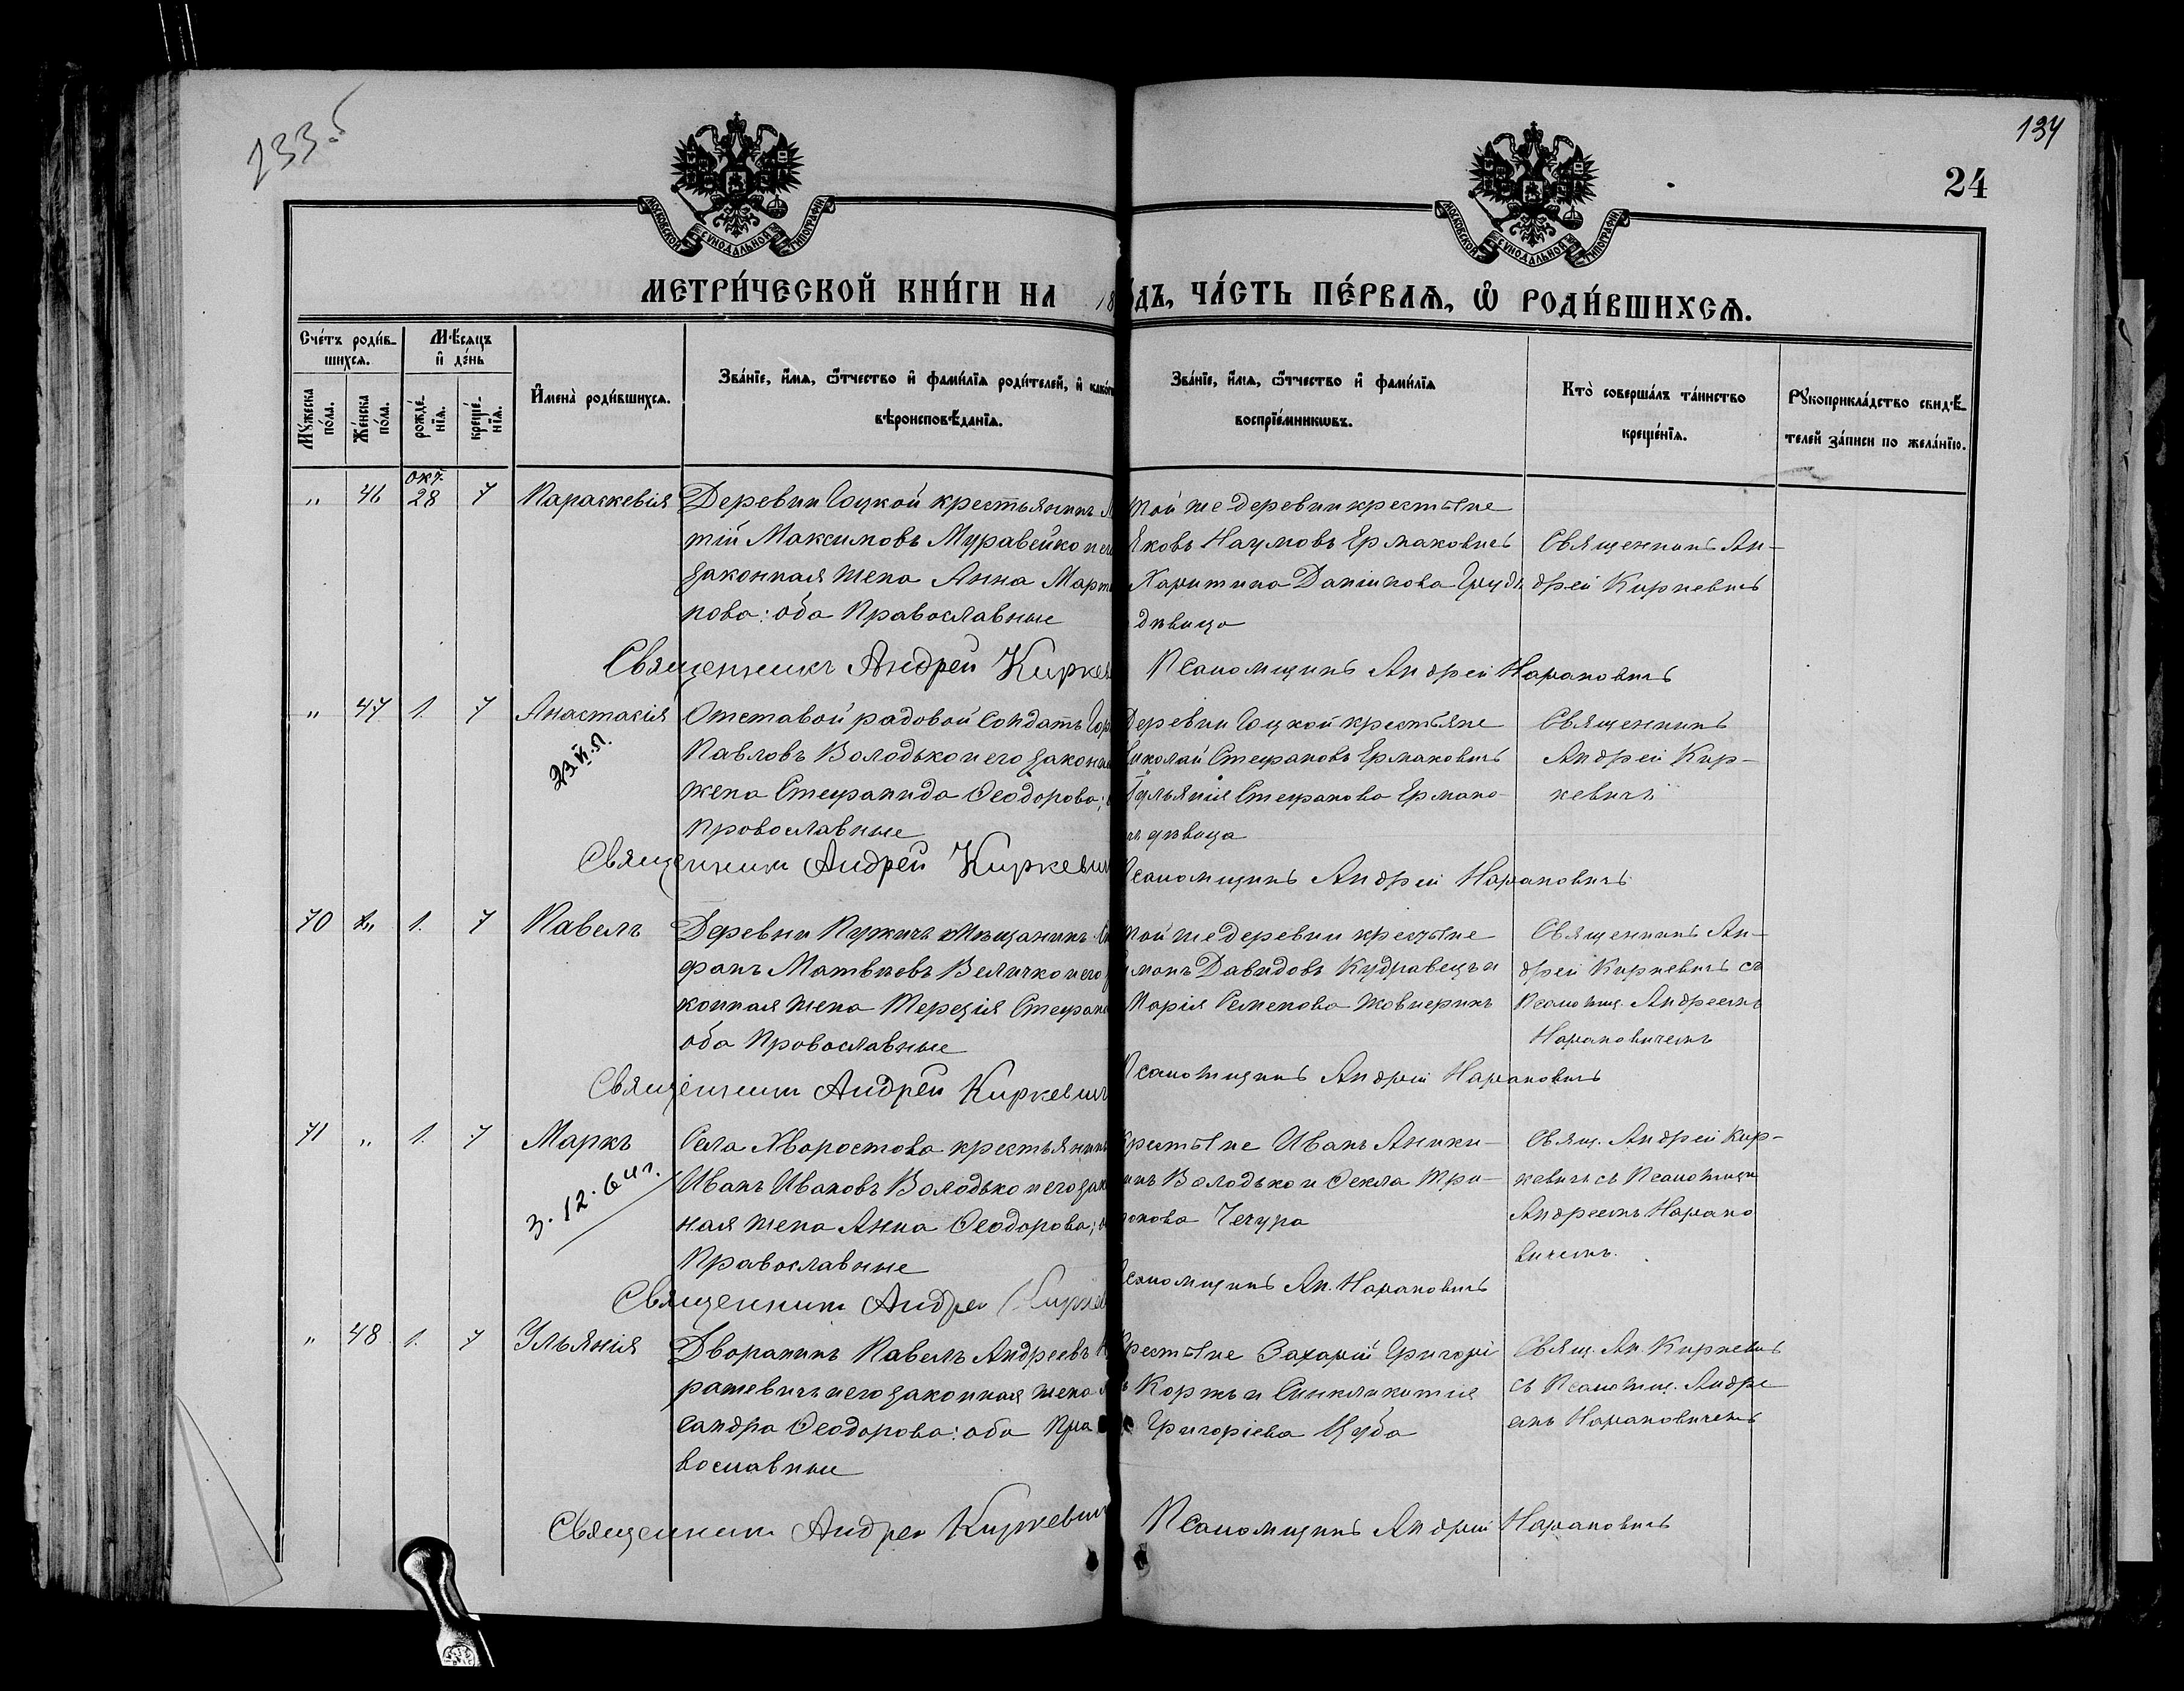 133.б
134
24
МОСКОВСКОЙ СѴНОДАЛЬНОЙ ТИПОГРАФІИ
МОСКОВСКОЙ СѴНОДАЛЬНОЙ ТИПОГРАФІИ
МЕТРИ́ЧЕСКОЙ КНИ́ГИ НА 18 ДЪ, ЧА́СТЬ ПЕ́РВАѦ, Ѡ҆ РОДИ́ВШИХСѦ.
Сче́тъ роди́в-
шихсѧ.
Мѣ́сѧцъ
и҆ де́нь
Мꙋ́жеска
по́ла.
Же́нска
по́ла.
рожде́-
нїѧ.
креще́-
нїѧ.
И҆мена̀ роди́вшихсѧ.
Зва́нїе, и҆́мѧ, ѻ҆́тчество и҆ фами́лїѧ роди́телей, и҆ како́г
вѣроисповѣ́данїѧ.
Зва́нїе, и҆́мѧ, ѻ҆́тчество и҆ фами́лїѧ
воспрїе́мникѡвъ.
Кто̀ соверша́лъ та́инство
креще́нїѧ.
Рꙋкоприкла́дство свидѣ́-
телей за́писи по жела́нїю.
„ 46 окт. 28 7 Параскевія Деревни Гоцкой крестьянинъ
тій Максимовъ Муравейко и его
законная жена Анна Март
нова: оба Православные
той же деревни крестьяне
Яковъ Наумовъ Ермаковичъ
Харитина Даніилова
дѣвица
Священникъ Ан-
дрей Киркевичъ
Священникъ Андрей Киркев
Псаломщикъ Андрей Нарановичъ
„ 47 1. 7 Анастасія Отставой радовой Солдатъ
Павловъ Володько и его закона
жена Стефанида Ѳеодорова;
Провославные
Деревни Гоцкой крестьяне
иколай Стефановъ Ермаковичъ
Стефанова Ермако-
дѣвица
Священникъ
Андрей Кир-
кевичъ
Священник Андрей Киркевич
Псаломщикъ Андрей Нарановичъ
70 „ 1. 7 Павелъ Деревни Пужичъ мѣщанинъ
фанъ Матвѣевъ Величко и его
конная жена Терезія Стефано
оба Провославные
той же деревни крестьяне
Давидовъ Кудравецъ и
Марія Семенова Жовнерикъ
Священникъ Ан-
дрей Киркевичъ съ
Псаломщ. Андреемъ
Нарановичемъ
Священник Андрей Киркевич
Псаломщикъ Андрей Нарановичъ
71 „ 1. 7 Маркъ Села Хворостова крестьянинъ
Иванъ Ивановъ Володько и его зак
ная жена Анна Ѳеодорова;
Православные
Крестьяне Иванъ Аники-
инъ Володько и Ѳекла Три-
фонова Чечура
Свящ. Андрей Кир-
кевичъ съ Псаломщи
Андреемъ Нарано
вичемъ.
Священник Андрей Киркев
Псаломщикъ Ан. Нарановичъ
„ 48 1. 7 Ульянія Дворанинъ Павелъ Андреевъ
рашевичъ и его законная жена
сандра Ѳеодорова: оба Пра
вославные
Крестьяне Захарій Григорі
Коржъ и Синкликитія
Григоріева Цуба
Свящ. Ан. Киркевичъ
съ Псаломщ. Андре
емъ Нарановичемъ
Священник Андрей Киркевич
Псаломщикъ Андрей Нарановичъ